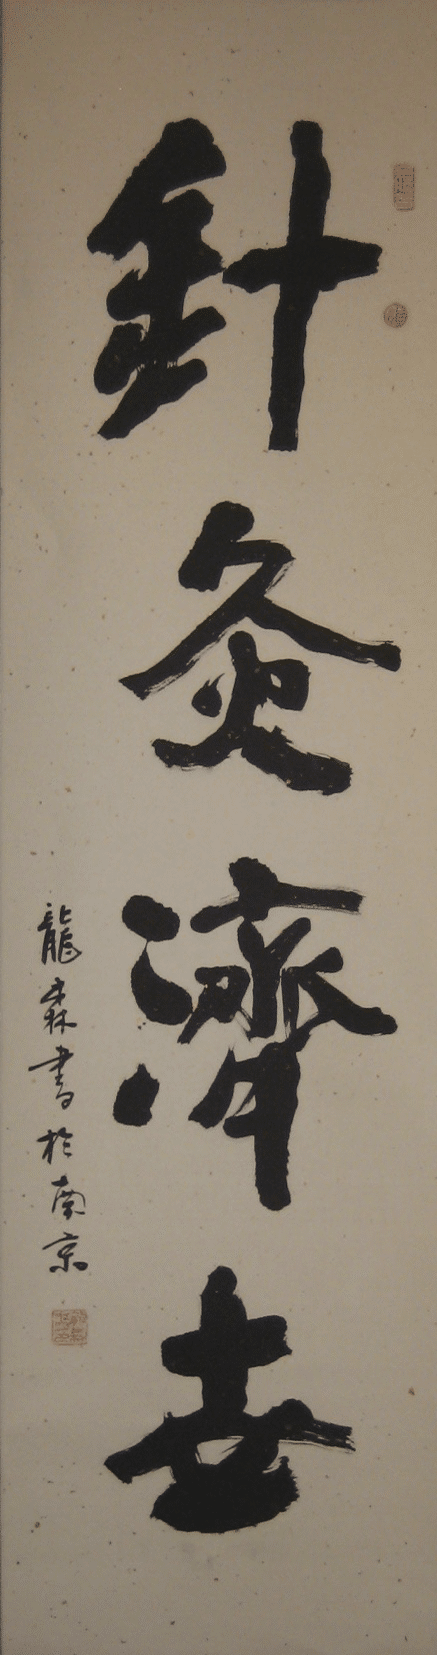 針灸濟世
龍森書於南京